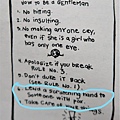 How to be a Gentleman
1. No hitting.
2. No insulting.
3. No making anyone cry, even if she is a girl who has only one eye.
4. Apologize if you break Rule No. 3.
5. Don't dare it back (see Rule No. 1)
6. Lend a
to someone with you
Take care of